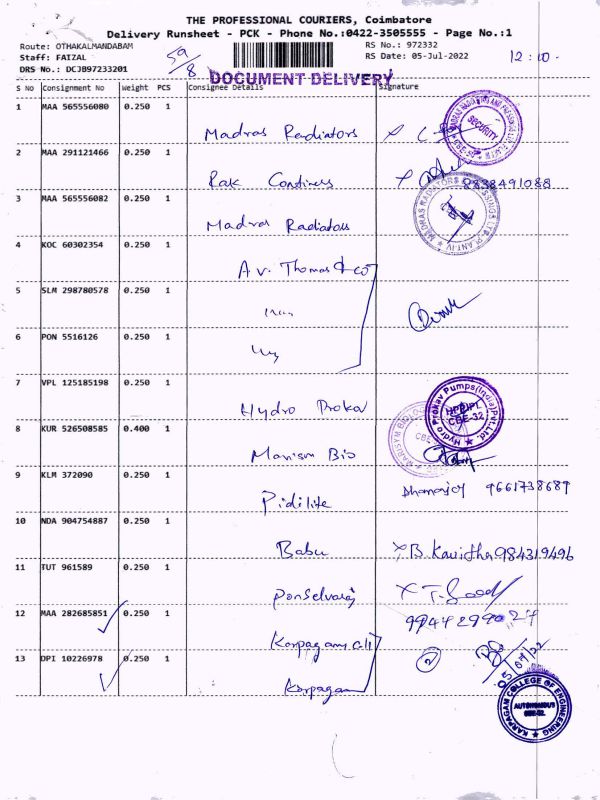 THE PROFESSIONAL COURIERS, Coimbatore
Delivery Runsheet - PCK - Phone No.:0422-3505555 - Page No.:1
Route: OTHAKALMANDABAM RS No.: 972332
Staff: FAIZAL 59/8 RS Date: 05-Jul-2022 12:10
DRS No.: DCJB97233201 DOCUMENT DELIVERY
S No Consignment No Weight PCS Consignee Details Signature
1 MAA 565556080 0.250 1
Madras Radiators
SECURITY
2 MAA 291121466 0.250 1
Rak 9838491088
MADRAS RADIATORS
3 MAA 565556082 0.250 1
Madras Radiators
4 KOC 60302354 0.250 1
A.V. Thomas & co
5 SLM 298780578 0.250 1
6 PON 5516126 0.250 1
7 VPL 125185198 0.250 1
Hydro Prokav
Hydro Prokav Pumps(India)Pvt.Ltd.
HPPIPL
CBE-32
8 KUR 526508585 0.400 1
Bio
9 KLM 372090 0.250 1
Pidilite Dhananjoy 9661738689
10 NDA 904754887 0.250 1
Babu B. Kavitha 984319496
11 TUT 961589 0.250 1
Ponselvaraj
12 MAA 282685851 0.250 1
9944299027
Karpagam clg
13 DPI 10226978 0.250 1
Karpagam 2 05/07/22
KARPAGAM COLLEGE OF ENGINEERING
AUTONOMOUS
CBE-32.